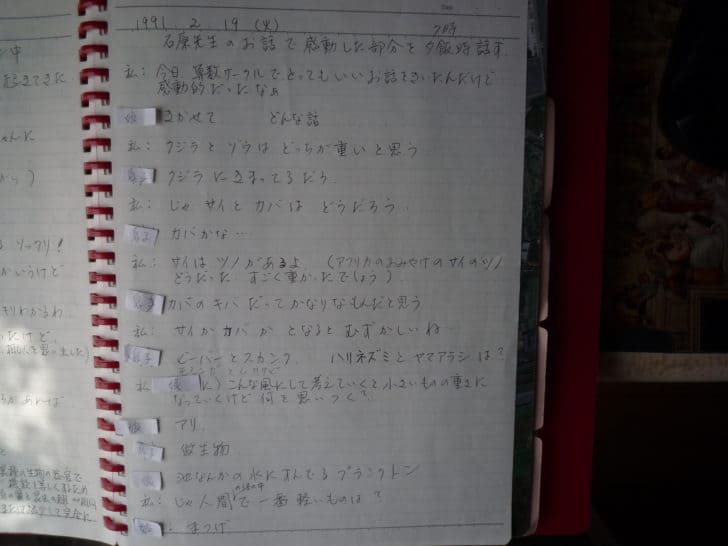 中
起きてきた
ゃんに
から)
リッアリ!
かいうけど
きりわかるわ
ったけど、
Date
1991. 2. 19 (火) 夕時
石原先生のお話で感動した部分を夕飯時話す.
私: 今日算数サークルでとってもいいお話をきいたんだけど
感動的だったなぁ
娘 きかせて どんな話
私: クジラとゾウはどっちが重いと思う
息子 クジラにきまってるだろ.
私: じゃサイとカバはどうだろう.
息子 カバかな…
私: サイはツノがあるよ (アフリカのおみやげのサイのツノ
どうだった すごく重かったでしょう)
息子 カバのキバだってかなりなもんだと思う
私: サイかカバかとなるとむずかしいね…
息子 ビーバーとスカンク. ハリネズミとヤマアラシは?
私 (娘に) こんな風にして考えていくと小さいものの重さに
なっていくけど何を思いつく?
娘 アリ.
息子 微生物
娘 池なんかの水にすんでるプランクトン
私: じゃ人間の体の中で一番軽いものは?
: まつげ